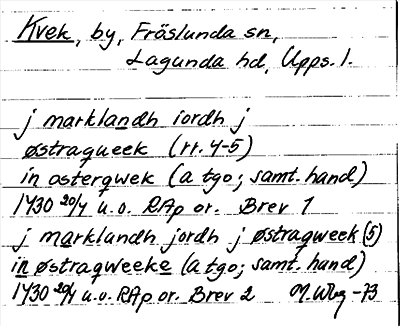 Kvek, by, Fröslunda sn,
Lagunda hd, Upps. l.
j marklandh iordh j
østraqueek (rr. 4-5)
in osterqwek (a tgo; samt. hand)
1430 20/4 u.o. RAp or. Brev 1
j marklandh jordh j østraqweek (5)
in østraqweeke (a tgo; samt. hand)
1430 20/4 u.o. RAp or. Brev 2 M.Wbg -73